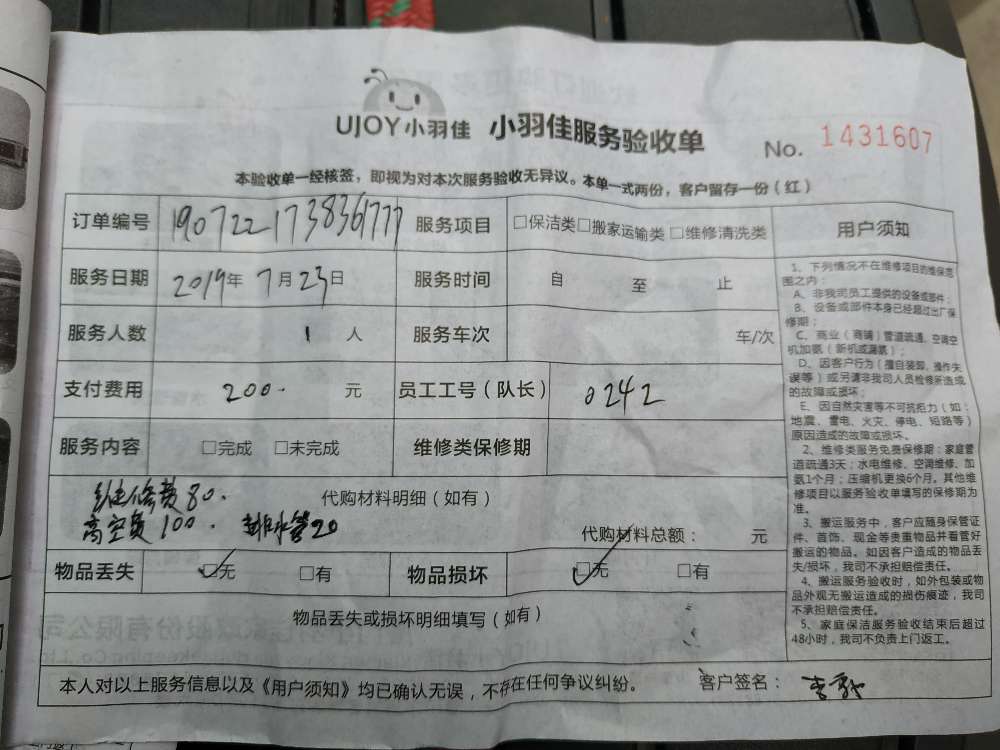 UJOY小羽佳 小羽佳服务验收单
No. 1431607
本验收单一经核签，即视为对本次服务验收无异议。本单一式两份，客户留存一份（红）
订单编号 1907221738361777 服务项目 □保洁类□搬家运输类 □维修清洗类
服务日期 2019年 7月 23日 服务时间 自 至 止
服务人数 1 人 服务车次 车/次
支付费用 200. 元 员工工号（队长） 0242
服务内容 □完成 □未完成 维修类保修期
维修费80. 代购材料明细（如有）
高空费100. 排水管20 代购材料总额： 元
物品丢失 ☑无 □有 物品损坏 ☑无 □有
物品丢失或损坏明细填写（如有）
本人对以上服务信息以及《用户须知》均已确认无误，不存在任何争议纠纷。 客户签名：
用户须知
1、下列情况不在维修项目的维保范
围之内：
A、非我司员工提供的设备或部件；
B、设备或部件本身已经超过出厂保
修期；
C、商业（商铺）管道疏通、空调空
机加氨（新机或漏氨）；
D、因客户行为（擅自装卸、操作失
误等）或另请非我司人员检修所造成
的故障或损坏；
E、因自然灾害等不可抗拒力（如：
地震、雷电、火灾、停电、短路等）
原因造成的故障或损坏。
2、维修类服务免费保修期：家庭管
道疏通3天；水电维修、空调维修、加
氨1个月；压缩机更换6个月。其他维
修项目以服务验收单填写的保修期为
准。
3、搬运服务中，客户应随身保管证
件、首饰、现金等贵重物品并看管好
搬运的物品。如因客户造成的物品丢
失/损坏，我司不承担赔偿责任。
4、搬运服务验收时，如外包装或物
品外观无搬运造成的损伤痕迹，我司
不承担赔偿责任。
5、家庭保洁服务验收结束后超过
48小时，我司不负责上门返工。